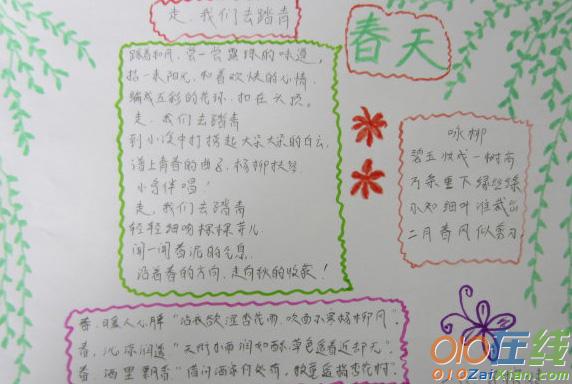 走、我们去踏青
春天
踏着和风,尝一尝露珠的味道,
掐一束阳光,和着欢快的心情
编成五彩的花环,扣在头顶。
走,我们去踏青
到小溪中打捞起大朵大朵的白云,
谱上青春的曲子,杨柳扶丝
小鸟伴唱!
走,我们去踏青
轻轻细吻棵棵芽儿
闻一闻春泥的气息
沿着春的方向,走向秋的收获!
咏柳
碧玉妆成一树高
万条垂下绿丝绦
不知细叶谁裁出
二月春风似剪刀.
春,暖人心脾"沾衣欲湿杏花雨,吹面不寒杨柳风".
春,沁 润造"天街小雨润如酥,草色遥看近却无".
春,酒里飘香"借问酒家何处有,牧童遥指杏花村".
010在线
010ZaiXian.com